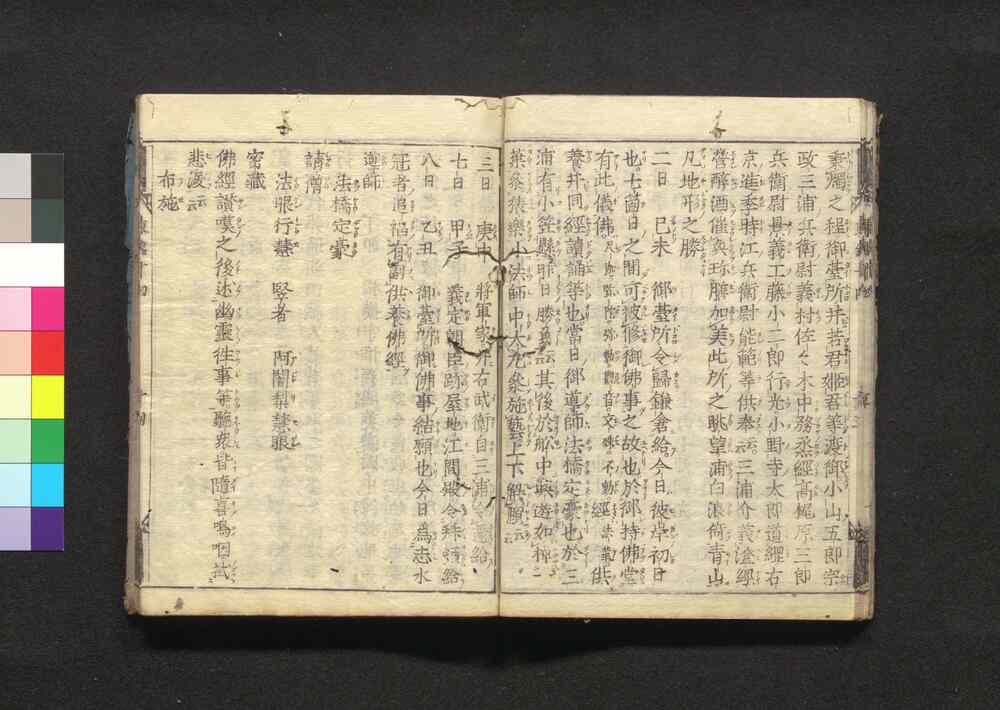 郵燭之程御臺所并若君扈吾等渡御小山五郎宗
政三浦兵衛尉義村佐々木中務丞經高梶原三郎
兵衛尉景義工藤小二郎行光小野寺太郎道綱右
京進季時江兵衛尉能範等供奉云三浦介義澄經
營醉酒催興珎膳加美此所之眺望浦白浪倚青山
凡地形之勝
二日 己未 御臺所令歸鎌倉給今日彼岸初日
也七箇日之間可被修御佛事之故也於御持佛堂
有此儀佛 經 供
養并同經讀誦等也當日御導師法橋定豪也於三
浦有小笠懸昨日勝負云其後於舩中興遊如棹一
葉參猿樂小法師中太丸參施藝上下解頤云
三日 庚申 將軍家并右武衛自三浦 給
七日 甲子 義定朝臣跡屋地江間殿令拜領給
八日 乙丑 御臺所御佛事結願也今日爲志水
冠者追福有副供養佛經
導師
法橋定豪
請僧
法眼行慧 堅者 阿闍梨慧眼
密藏
佛經讃嘆之後述幽靈徃事等聽衆皆隨喜嗚咽拭
悲涙云
布施